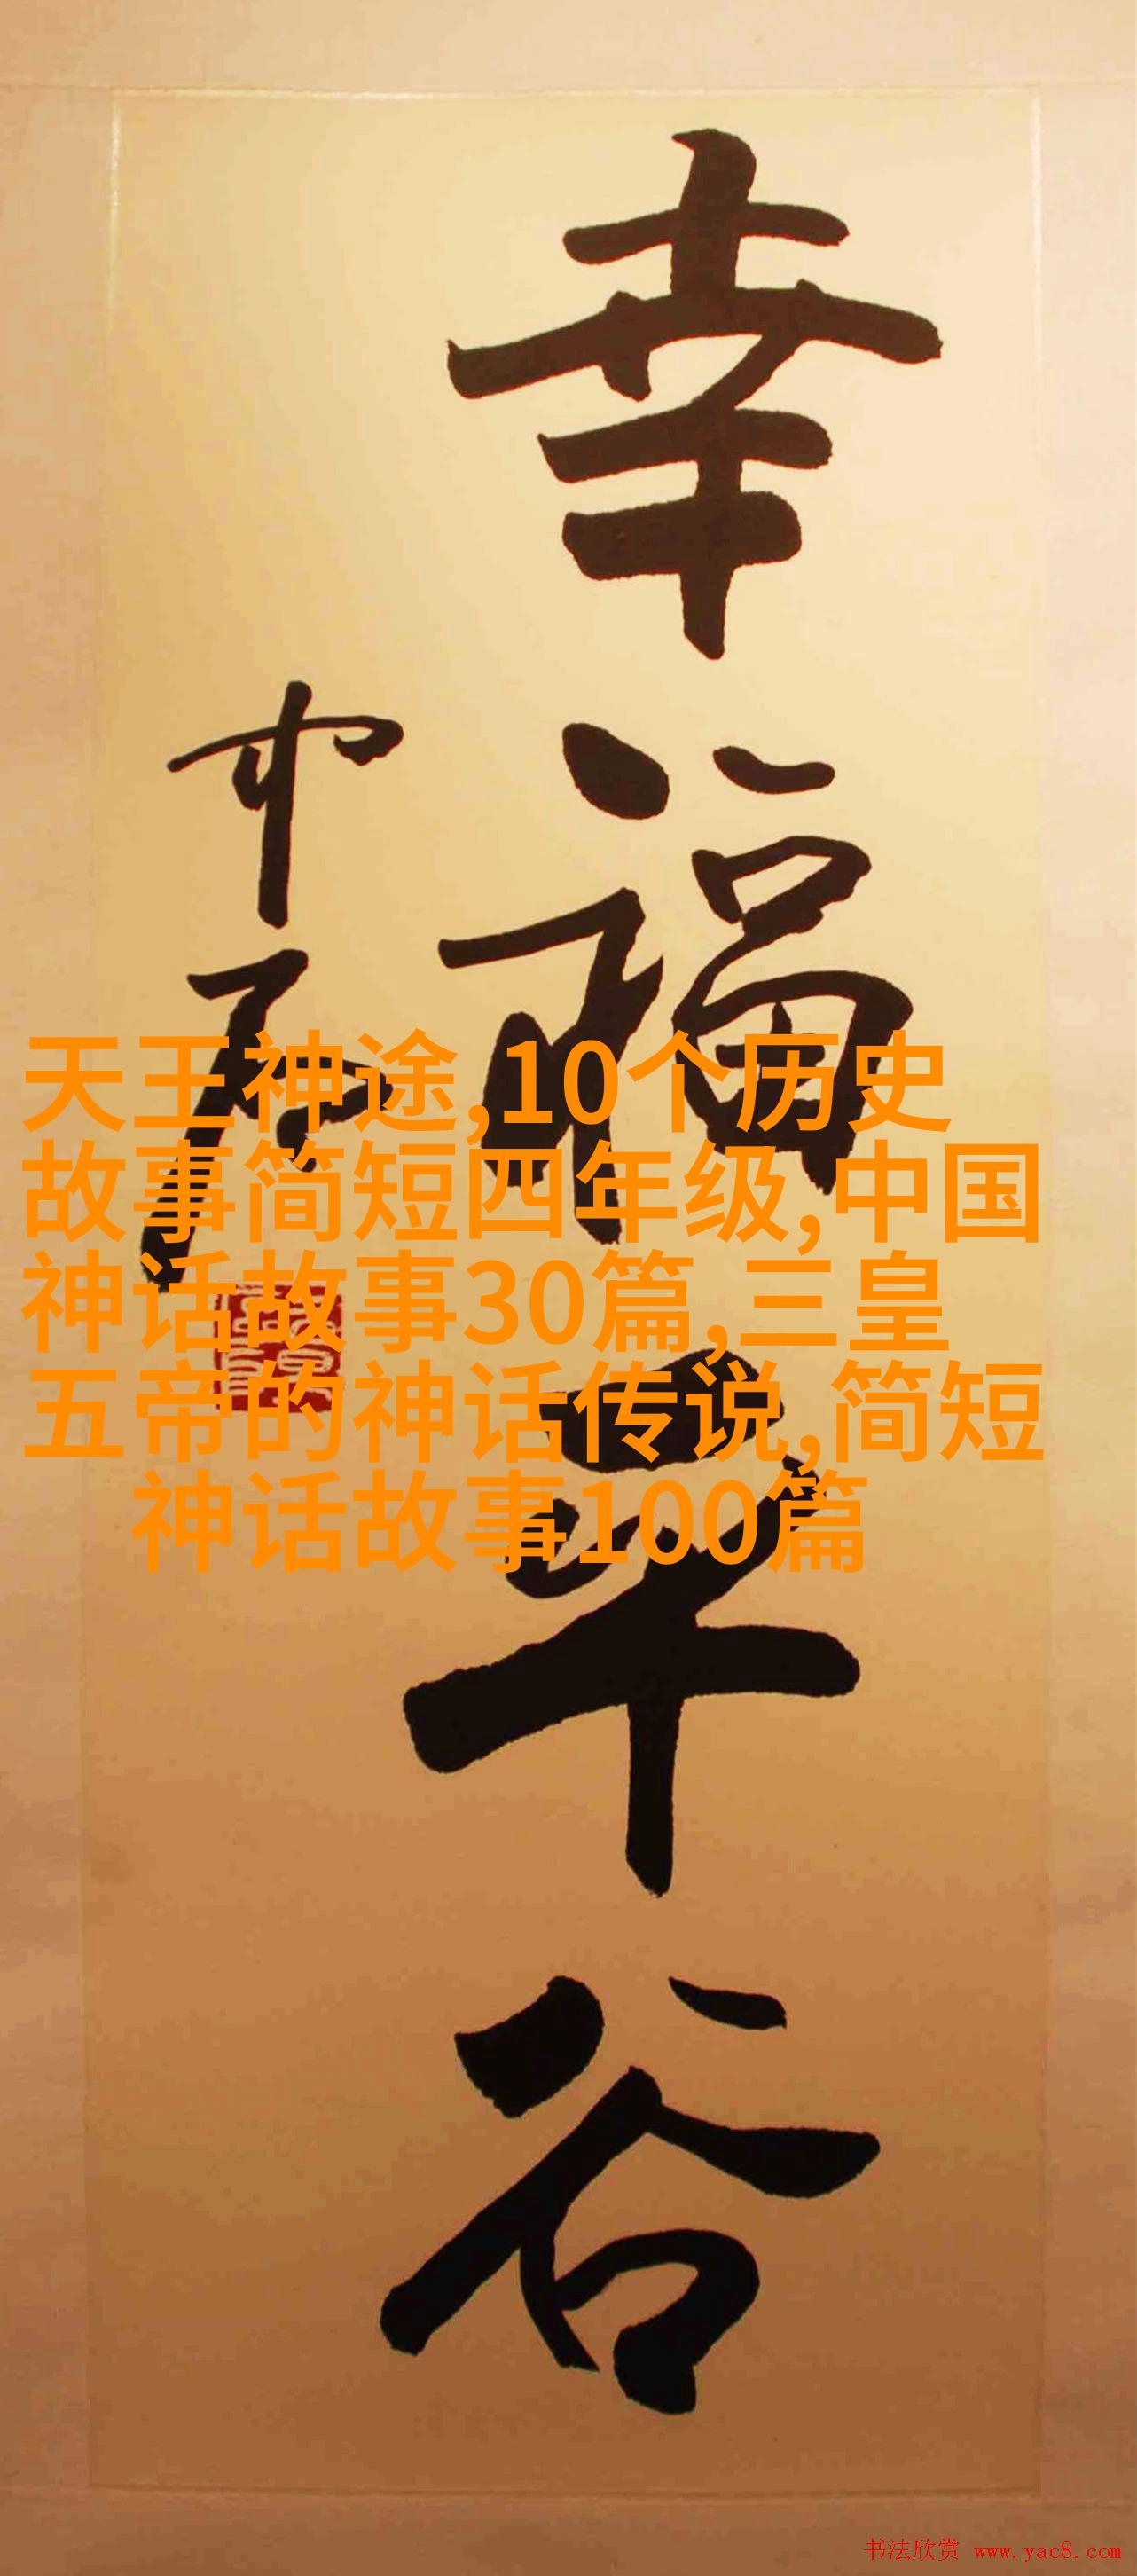 幸福平谷
中石
天王神途,10个历史
故事简短四年级,中国
神话故事30篇,三皇
五帝的神话传说,简短
神话故事100篇
书法欣赏 www.yac8.com